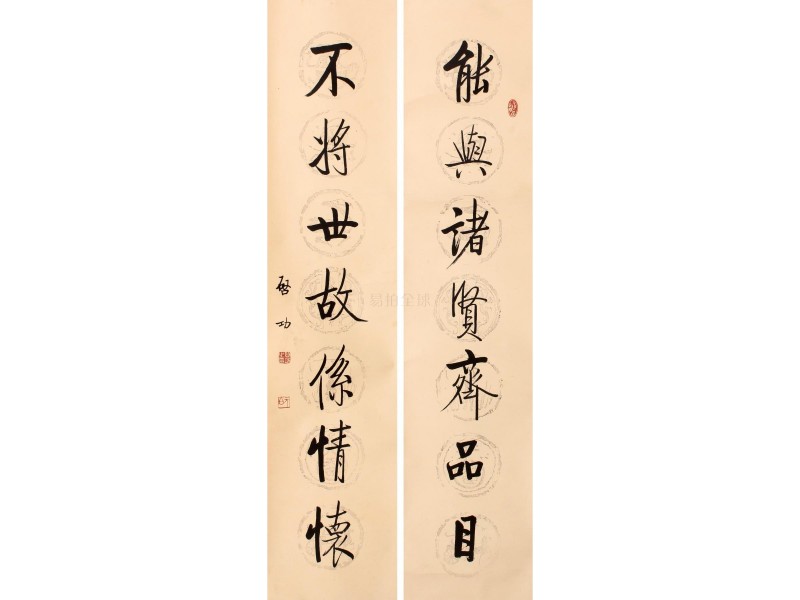 能與諸賢齊品目
不將世故係情懷
啓功
易拍全球